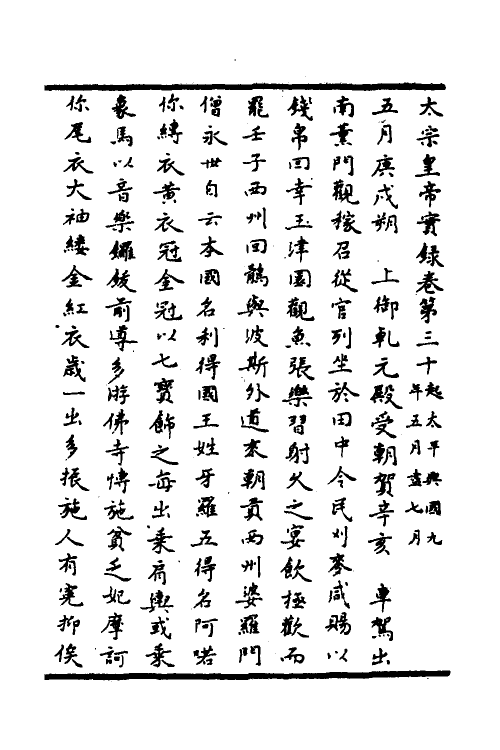 太宗皇帝實錄卷第三十起太平興國九年五月盡七月
五月庚戌朔　上御乹元殿受朝賀辛亥　車駕出
南薰門觀稼召從官列坐於田中令民刈麥咸賜以
錢帛回幸玉津園觀魚張樂習射久之宴飲極歡而
罷壬子西州回鶻與波斯外道來朝貢西州婆羅門
僧永世自云本國名利得國王姓牙羅五得名阿喏
你縛衣黄衣冠金冠以七寳飾之每出乗肩輿或乗
象馬以音樂鑼鈸前導多游佛寺愽施貧乏妃摩訶
你尾衣大袖縷金紅衣歲一出多振施人有寃抑俟